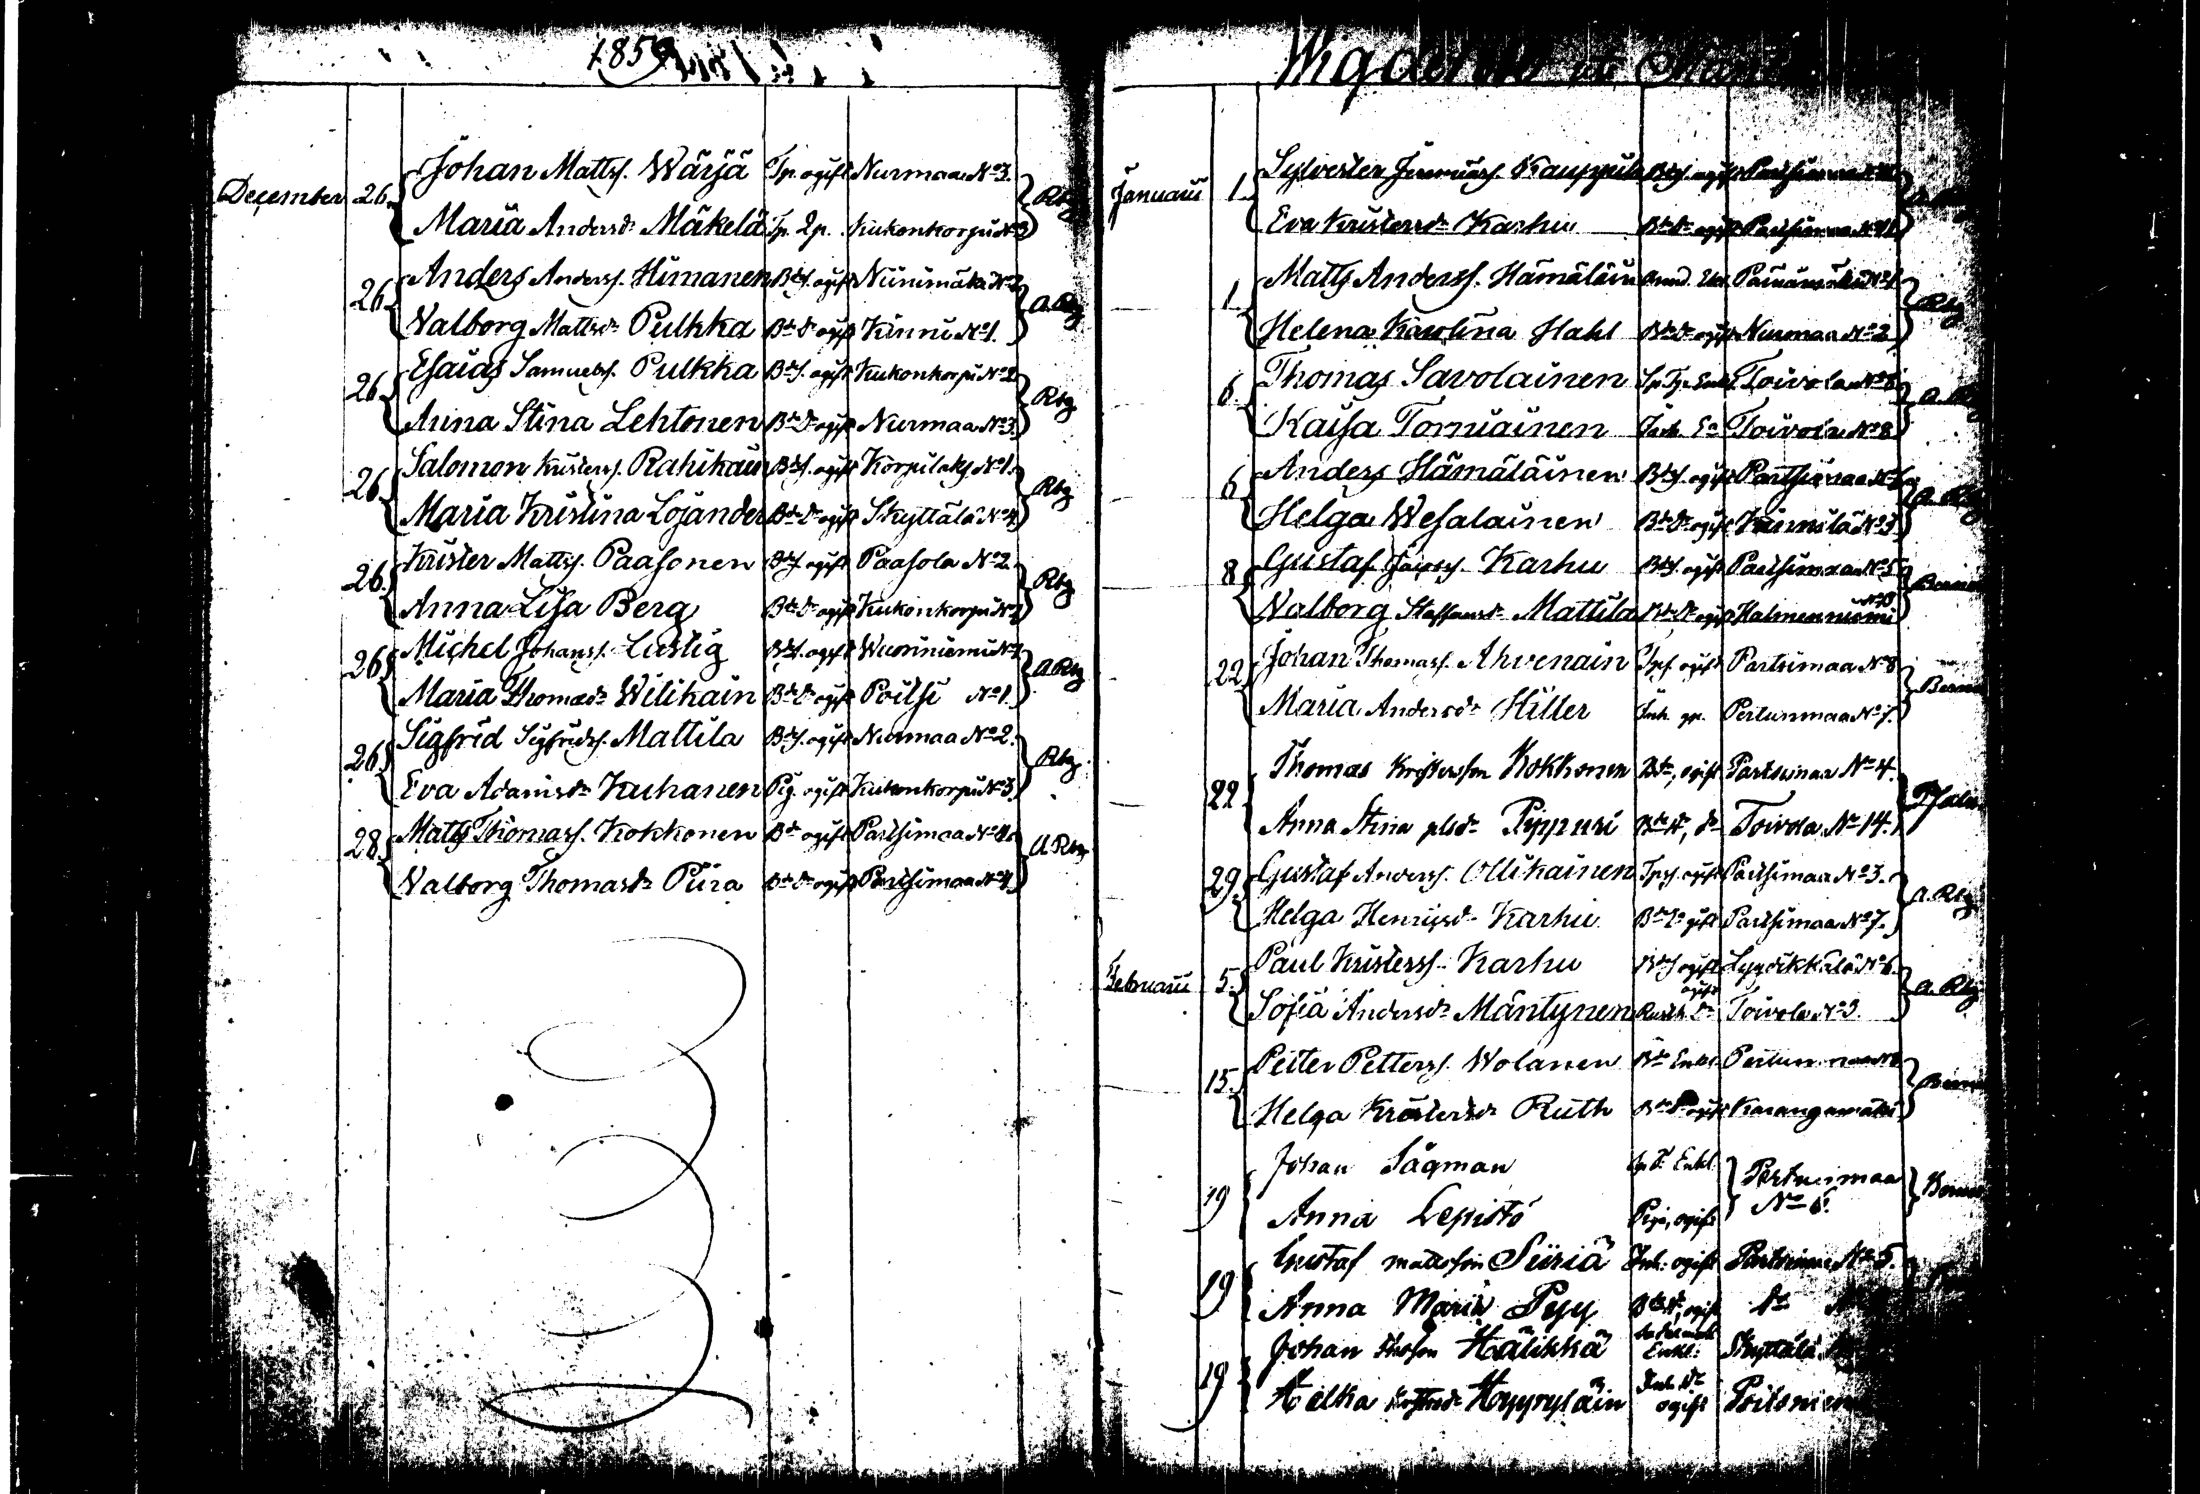 1859
December 26. Johan Mattss. Wärjä Tp. ogift Nurmaa No 3. Rbg
Maria Andersdr Mäkelä Tp. Kukonkorpi No 3
26 Anders Anderss. Himanen Bds. ogift Niinimäki No 2 A.Rbg
Walborg Mattsdr Pulkka Bde Dr ogift Kinni No 1.
26 Esaias Samuelss. Pulkka Bds. ogift Kukonkorpi No 2 Rbg
Anna Stina Lehtonen Bde Dr ogift Nurmaa No 3.
26 Salomon Kristerss. Rahikain Bds. ogift Korpilaks No 1. Rbg
Maria Kristina Lojander Bde Dr ogift Skyttälä No 4
26. Krister Mattss. Paasonen Bds. ogift Paasola No 2. Rbg
Anna Lisa Berg Bde Dr ogift Kukonkorpi No 2
26 Michel Johanss. Lustig Bds. ogift Wuoriniemi No 2 A.Rbg
Maria Thomasdr Wilikain Bde Dr ogift Poitsi No 1.
26 Sigfrid Sigfridss. Mattila Bds. ogift Nurmaa No 2. Rbg
Eva Adamsdr Kuhanen Pig. ogift Kukonkorpi No 3.
28 Matts Thomass. Kokkonen Bde ogift Partsimaa No 4. A.Rbg
Walborg Thomasdr Piira Bde Dr ogift Partsimaa No 4
Wigde
Januarii 1. Sylvester Kauppila Bds. ogift Partsimaa
Eva Kristersdr Karhu Bde Dr ogift Partsimaa No 11
1. Matts Anderss. Hämäläin Enk. No 1 Rbg
Helena Karolina Hahl Bde Dr ogift Nurmaa No 2
6. Thomas Savolainen Toivola No 8 A. Rbg
Kaisa Torniainen Inh. Toivola No 8
6 Anders Hämäläinen Bds. ogift Partsimaa A. Rbg
Helga Wesalainen Bde Dr ogift No 3
8 Gustaf Karhu Bds. ogift Partsimaa No 5
Walborg Staffansdr Mattila Bde Dr ogift Halmenniemi
22 Johan Thomass. Ahvenain Tps. ogift Partsimaa No 8
Maria Andersdr Hiller Inh. Pertunmaa No 7.
22 Thomas Kristersson Kokkonen Bde, ogift Partsimaa No 4.
Anna Stina Pippuri Bde Dr, do Toivola No 14.
29 Gustaf Anderss. Ollikainen Tps. ogift Partsimaa No 3. A. Rbg
Helga Henrigsdr Karhu Bde Dr gift Partsimaa No 7.
Februarii 5. Paul Kristerss. Karhu Bds ogift Lyydikkälä No 6. A. Rbg
Sofia Andersdr Mäntynen ogift Toivola No 3.
15. Petter Petterss. Wolanen Bde Enkl. Pertunmaa
Helga Kristersdr Ruth Bde Dr ogift Karangamäki
19 Johan Sagman Enkl. Pertunmaa
Anna Lepistö Piga, ogift No 6.
19 Gustaf Mattsson Siiriä Inh. ogift Partsimaa No 5.
Anna Maria Pyy Bde Dr, ogift do
19 Johan Hälikkä Enkl: Skyttälä
Helka Höyryläin Inh. Dr ogift